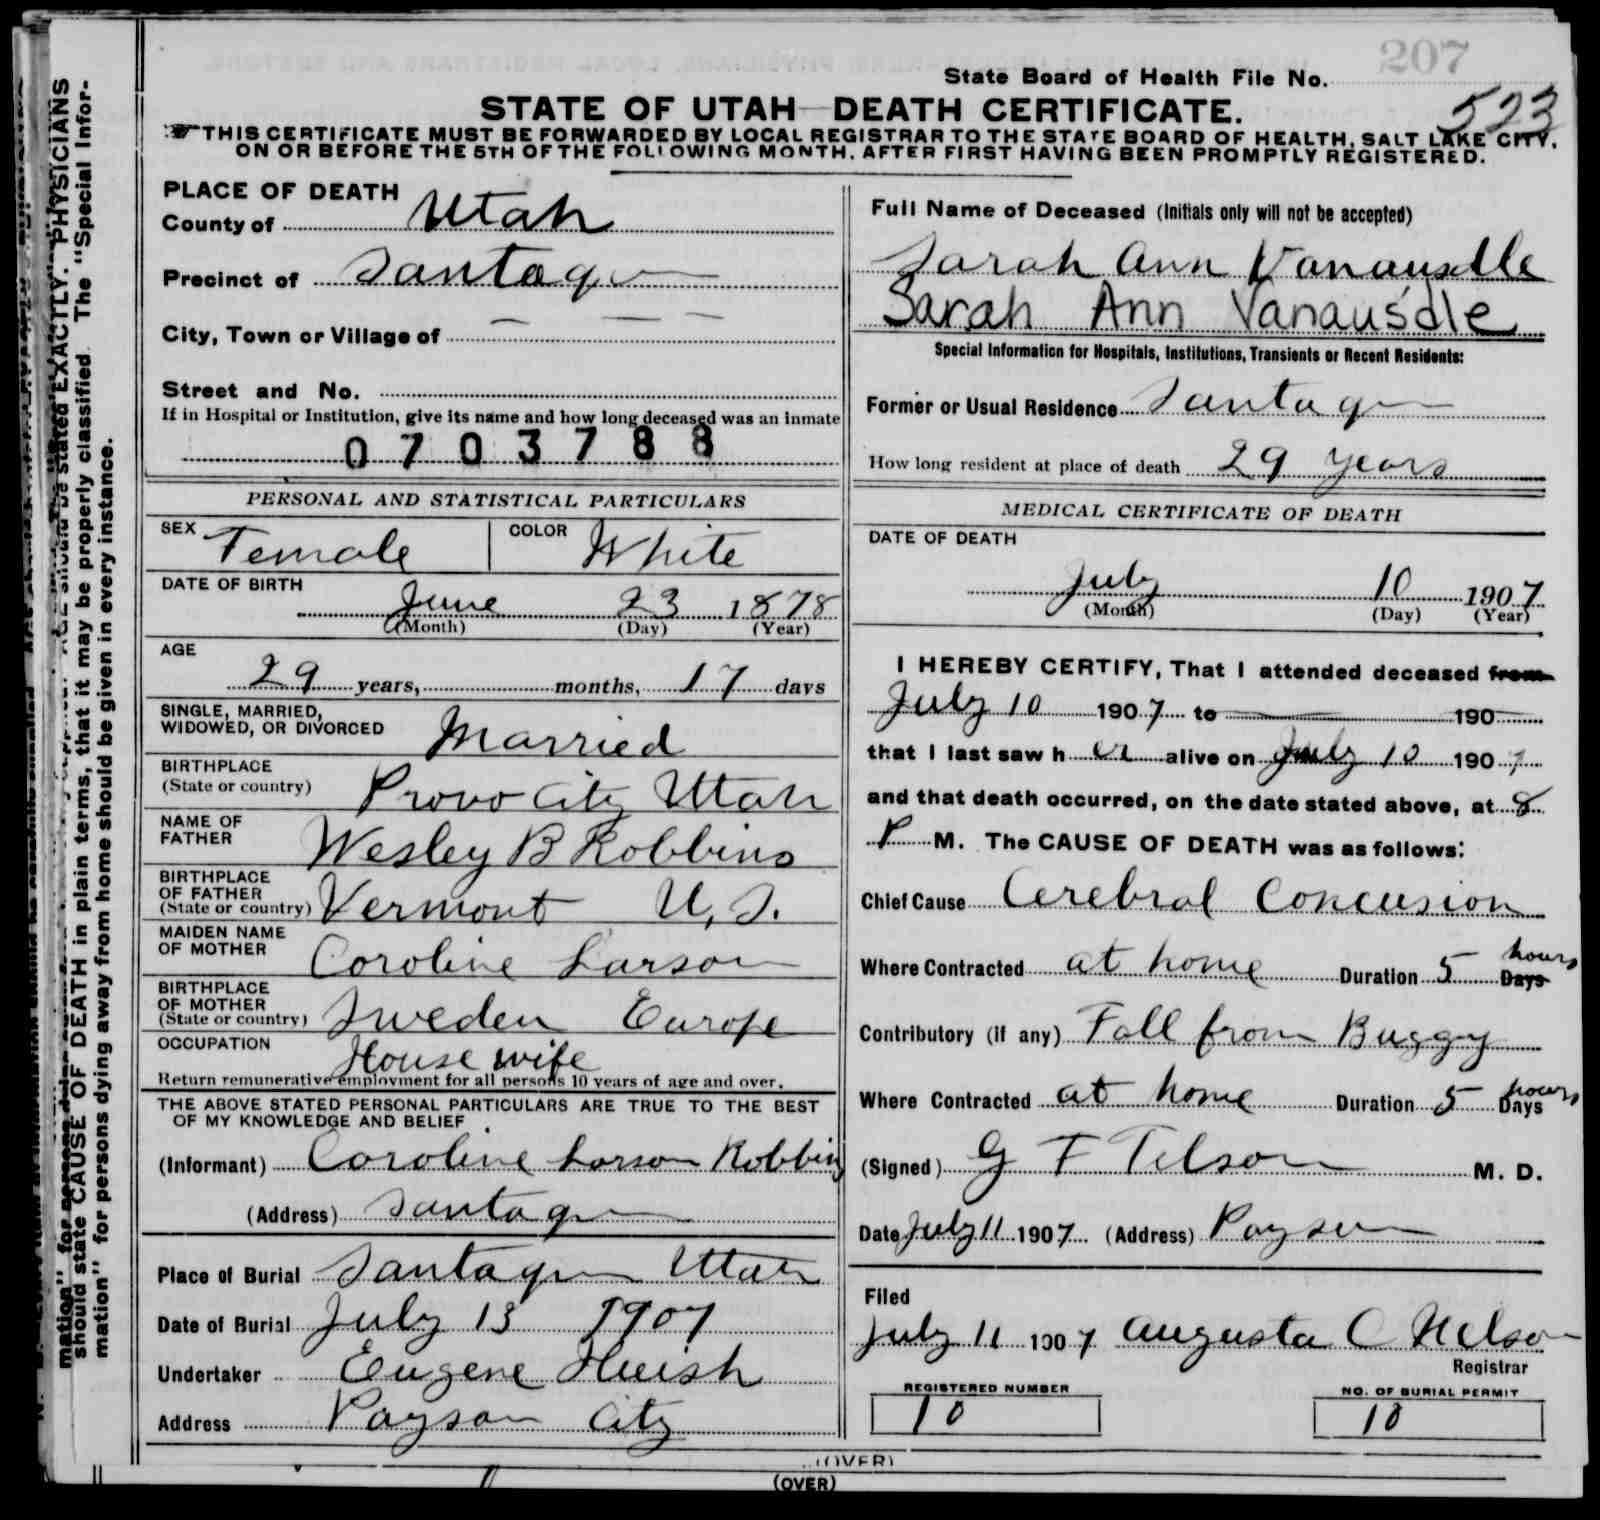 207
State Board of Health File No.
523
STATE OF UTAH—DEATH CERTIFICATE.
THIS CERTIFICATE MUST BE FORWARDED BY LOCAL REGISTRAR TO THE STATE BOARD OF HEALTH, SALT LAKE CITY,
ON OR BEFORE THE 5TH OF THE FOLLOWING MONTH, AFTER FIRST HAVING BEEN PROMPTLY REGISTERED.
PLACE OF DEATH
County of Utah
Precinct of Santaquin
City, Town or Village of — — —
Street and No.
If in Hospital or Institution, give its name and how long deceased was an inmate
0703788
PERSONAL AND STATISTICAL PARTICULARS
SEX Female COLOR White
DATE OF BIRTH
June 23 1878
(Month) (Day) (Year)
AGE
29 years, months, 17 days
SINGLE, MARRIED,
WIDOWED, OR DIVORCED Married
BIRTHPLACE
(State or country) Provo City Utah
NAME OF
FATHER Wesley B Robbins
BIRTHPLACE
OF FATHER
(State or country) Vermont U.S.
MAIDEN NAME
OF MOTHER Coroline Larson
BIRTHPLACE
OF MOTHER
(State or country) Sweden Europe
OCCUPATION
House wife
Return remunerative employment for all persons 10 years of age and over.
THE ABOVE STATED PERSONAL PARTICULARS ARE TRUE TO THE BEST
OF MY KNOWLEDGE AND BELIEF
(Informant) Coroline Larson Robbins
(Address) Santaquin
Place of Burial Santaquin Utah
Date of Burial July 13 1907
Undertaker Eugene Huish
Address Payson City
Full Name of Deceased (Initials only will not be accepted)
Sarah Ann Vanausdle
Sarah Ann Vanausdle
Special Information for Hospitals, Institutions, Transients or Recent Residents:
Former or Usual Residence Santaquin
How long resident at place of death 29 years
MEDICAL CERTIFICATE OF DEATH
DATE OF DEATH
July 10 1907
(Month) (Day) (Year)
I HEREBY CERTIFY, That I attended deceased from
July 10 1907 to 190
that I last saw her alive on July 10 1907
and that death occurred, on the date stated above, at 8
P M. The CAUSE OF DEATH was as follows:
Chief Cause Cerebral Concusion
Where Contracted at home Duration 5 Days hours
Contributory (if any) Fall from Buggy
Where Contracted at home Duration 5 Days hours
(Signed) G F Tilson M. D.
Date July 11 1907 (Address) Payson
Filed
July 11 1907 Augusta C Nelson
Registrar
REGISTERED NUMBER
10
NO. OF BURIAL PERMIT
10
(OVER)
(OVER)
PHYSICIANS
should be stated EXACTLY.
should state CAUSE OF DEATH in plain terms, that it may be properly classified. The "Special Infor-
mation" for persons dying away from home should be given in every instance.